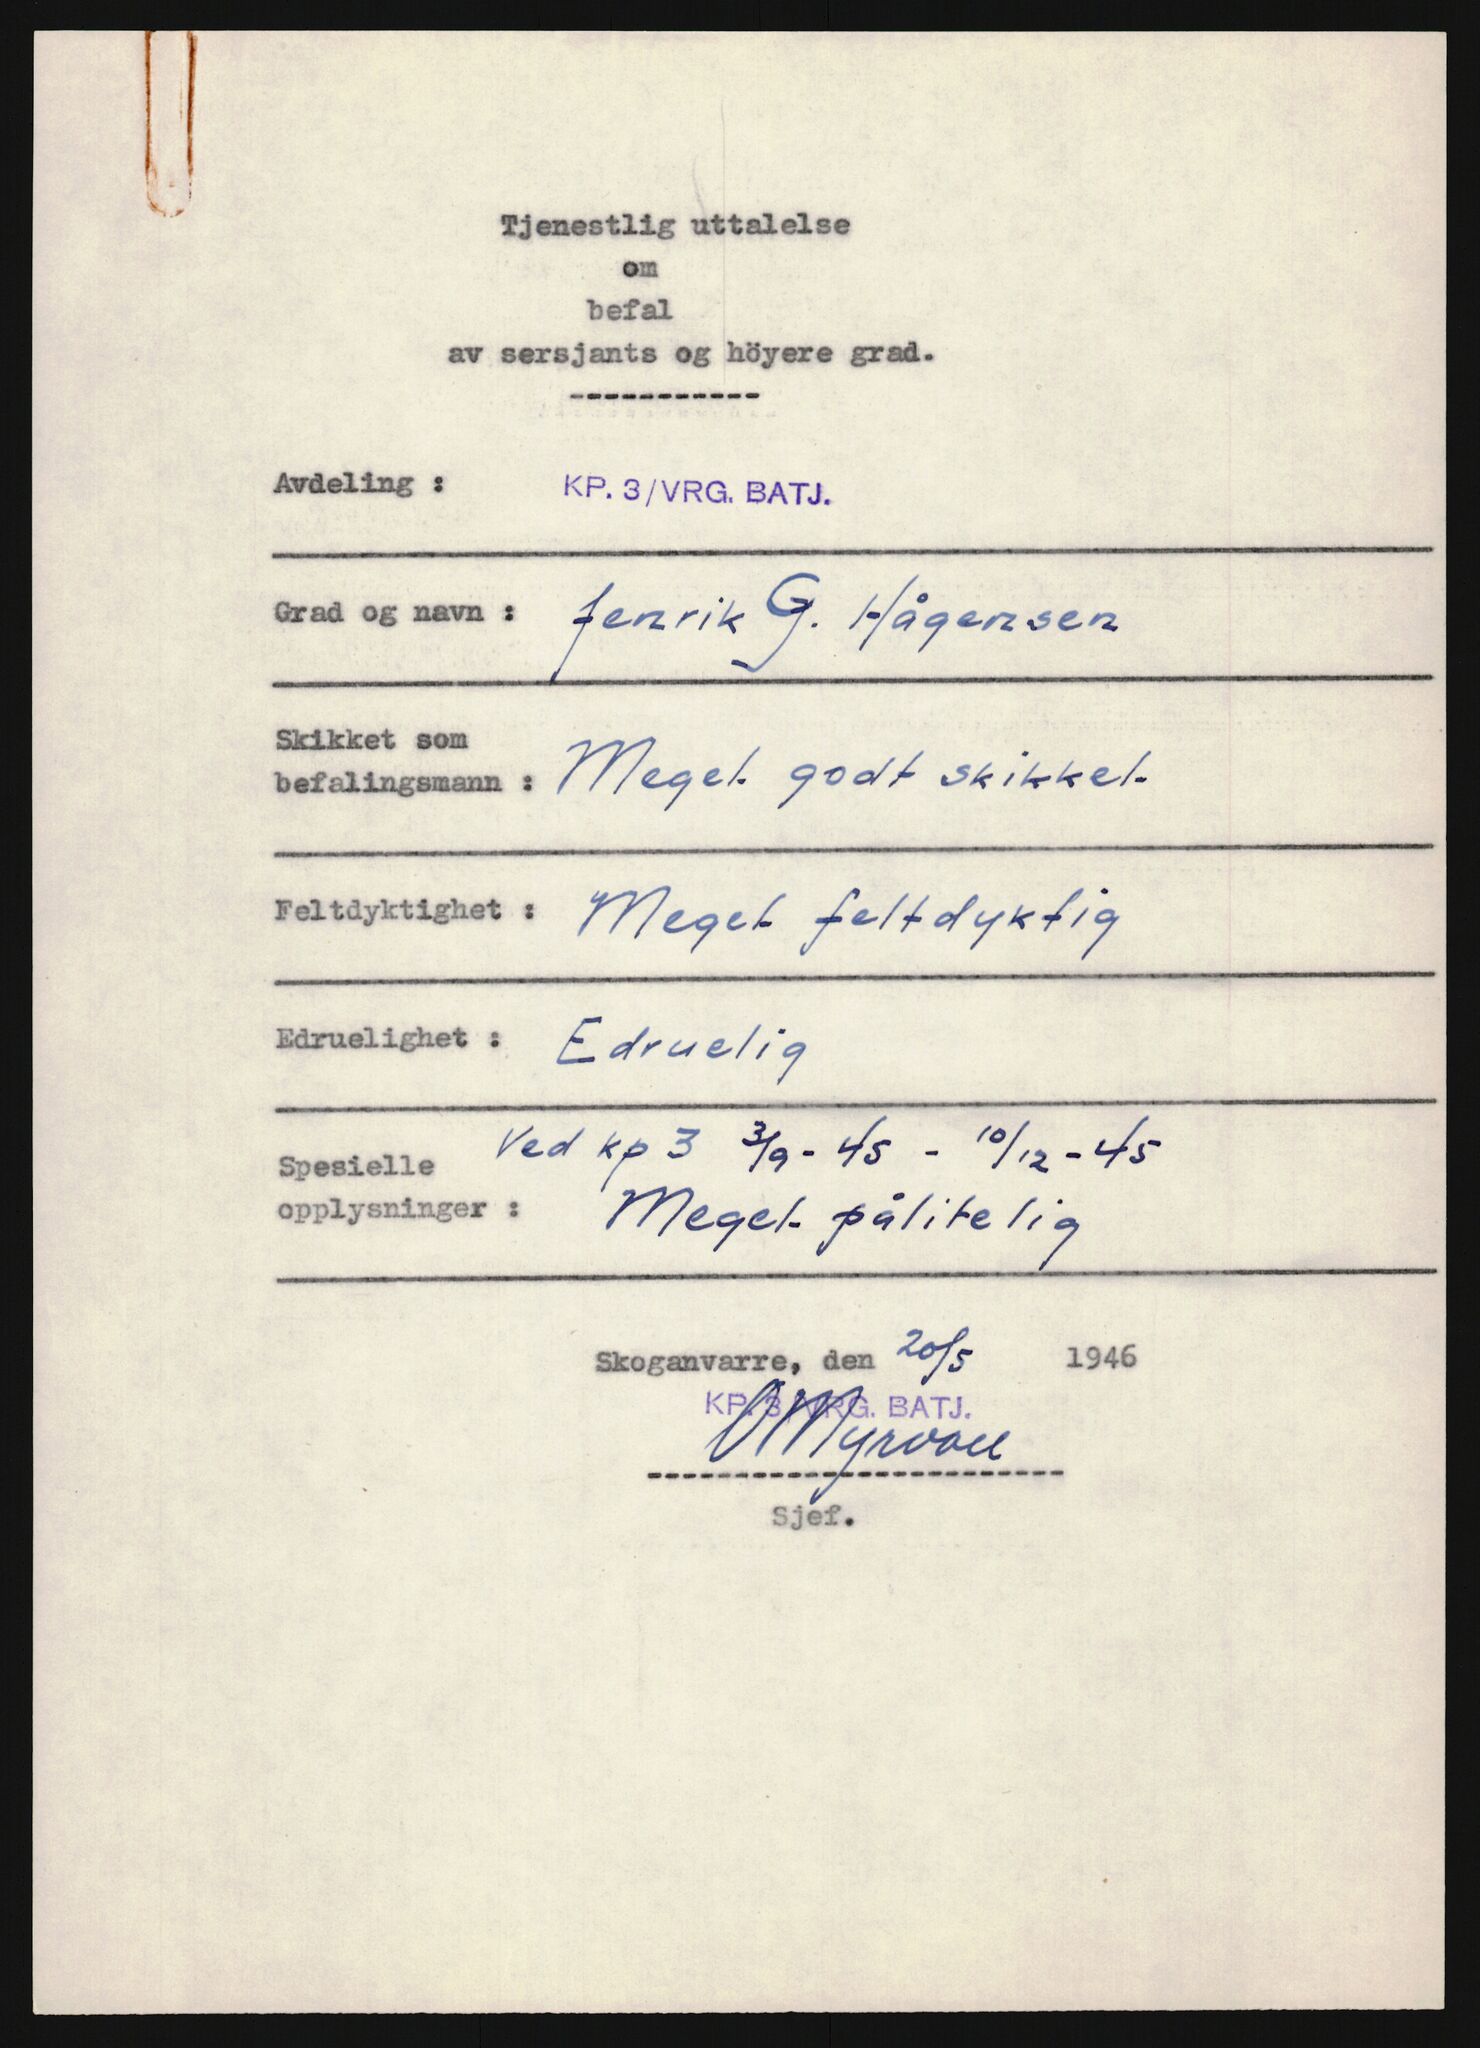 Tjenestlig uttalelse
om
befal
av sersjants og höyere grad.
-----------
Avdeling : KP. 3/VRG. BATJ.
Grad og navn : fenrik G. Hågensen
Skikket som
befalingsmann : Meget godt skikket
Feltdyktighet : Meget feltdyktig
Edruelighet : Edruelig
Ved kp 3 3/9 - 45 - 10/12 - 45
Spesielle
opplysninger : Meget pålitelig
Skoganvarre, den 20/5 1946
KP. 3/VRG. BATJ.
O Myrvoll
Sjef.